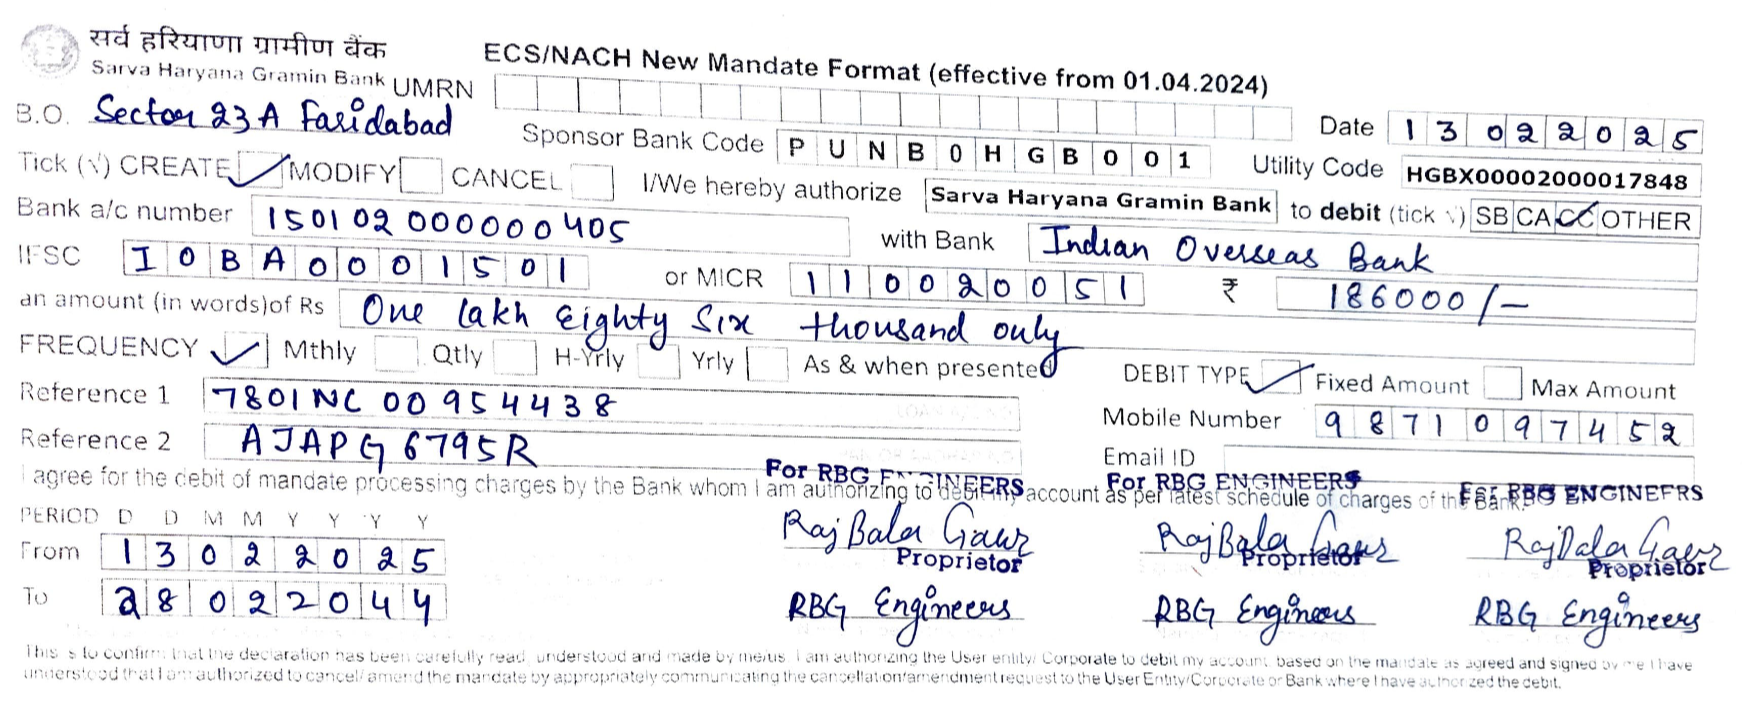 सर्व हरियाणा ग्रामीण बैंक
Sarva Haryana Gramin Bank
ECS/NACH New Mandate Format (effective from 01.04.2024)
UMRN
B.O. Sector 23A Faridabad
Date 13022025
Sponsor Bank Code PUNB0HGB001
Utility Code HGBX00002000017848
Tick (√) CREATE ✓ MODIFY CANCEL
I/We hereby authorize Sarva Haryana Gramin Bank to debit (tick √) SB CA CC OTHER
Bank a/c number 150102000000405
with Bank Indian Overseas Bank
IFSC IOBA0001501 or MICR 110020051 ₹ 186000/-
an amount (in words)of Rs One lakh Eighty Six thousand only
FREQUENCY ✓ Mthly Qtly H-Yrly Yrly As & when presented
DEBIT TYPE ✓ Fixed Amount Max Amount
Reference 1 7801NC00954438
Mobile Number 9871097452
Reference 2 AJAPG6795R
Email ID
I agree for the debit of mandate processing charges by the Bank whom I am authorizing to debit my account as per latest schedule of charges of the Bank.
For RBG ENGINEERS For RBG ENGINEERS For RBG ENGINEERS
PERIOD D D M M Y Y Y Y
From 13022025
To 28022044
Raj Bala Gaur Raj Bala Gaur Raj Bala Gaur
Proprietor Proprietor Proprietor
RBG Engineers RBG Engineers RBG Engineers
This is to confirm that the declaration has been carefully read, understood and made by me/us. I am authorizing the User entity/ Corporate to debit my account, based on the mandate as agreed and signed by me I have
understood that I am authorized to cancel/amend the mandate by appropriately communicating the cancellation/amendment request to the User Entity/Corporate or Bank where I have authorized the debit.